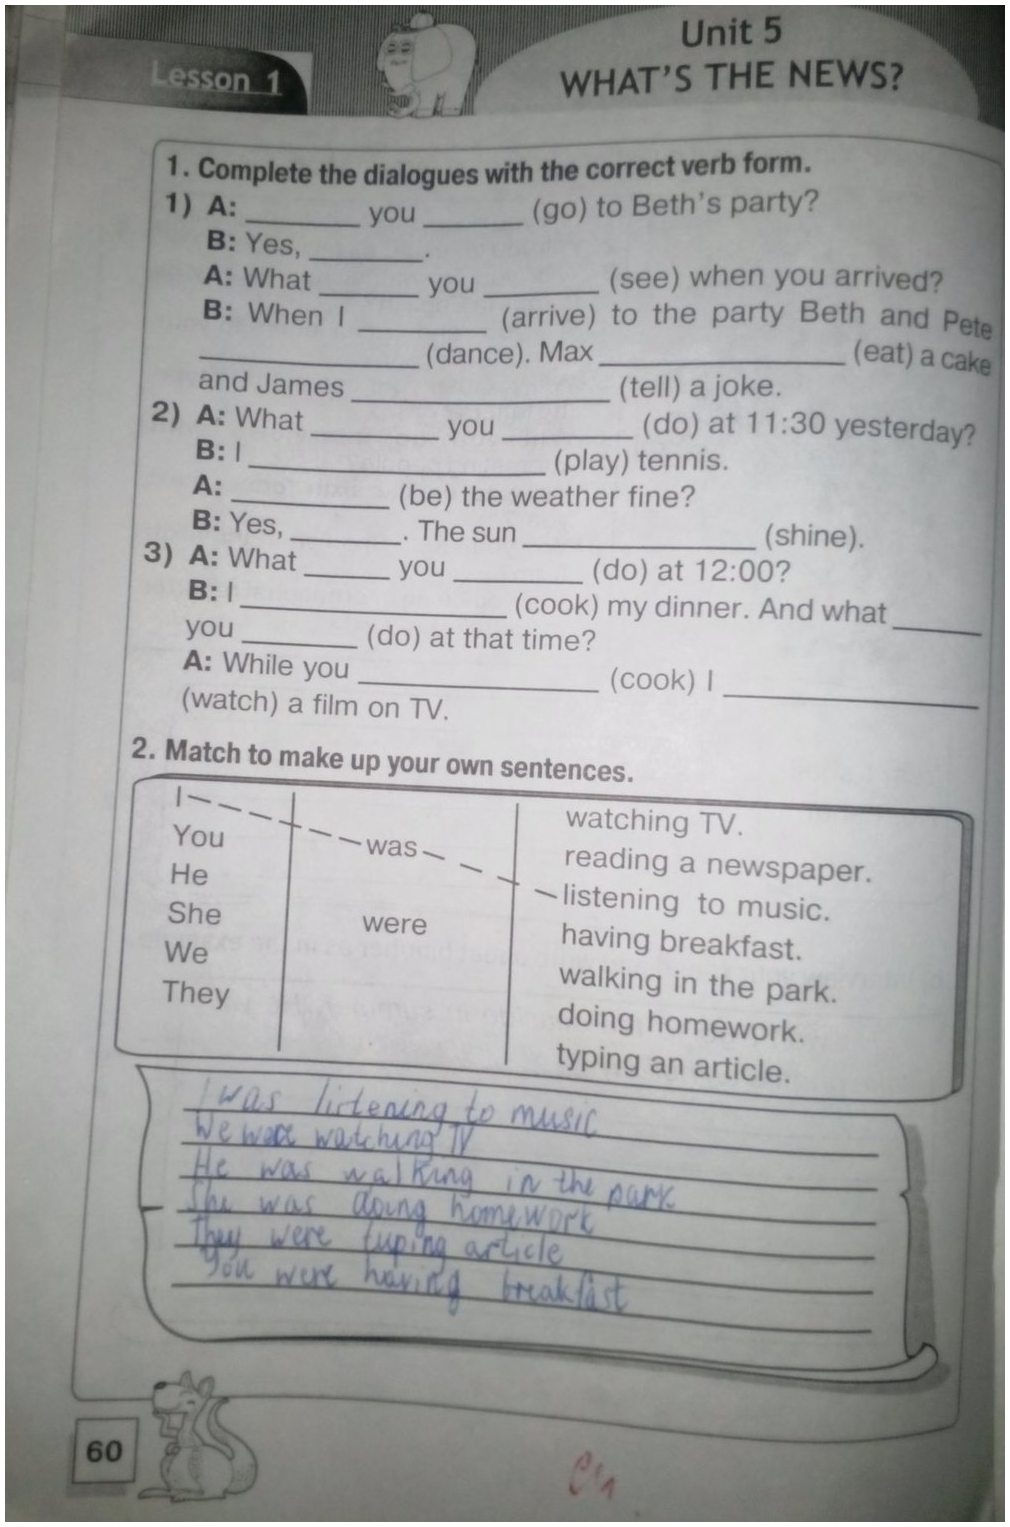 Unit 5
Lesson 1
WHAT'S THE NEWS?
1. Complete the dialogues with the correct verb form.
1) A: ________ you ________ (go) to Beth's party?
B: Yes, ________.
A: What ________ you ________ (see) when you arrived?
B: When I ________ (arrive) to the party Beth and Pete
________ (dance). Max ________ (eat) a cake
and James ________ (tell) a joke.
2) A: What ________ you ________ (do) at 11:30 yesterday?
B: I ________ (play) tennis.
A: ________ (be) the weather fine?
B: Yes, ________. The sun ________ (shine).
3) A: What ________ you ________ (do) at 12:00?
B: I ________ (cook) my dinner. And what ________
you ________ (do) at that time?
A: While you ________ (cook) I ________
(watch) a film on TV.
2. Match to make up your own sentences.
I
You
He
She
We
They
was
were
watching TV.
reading a newspaper.
listening to music.
having breakfast.
walking in the park.
doing homework.
typing an article.
I was listening to music
We were watching TV
He was walking in the park
She was doing homework
They were tuping article
You were having breakfast
60